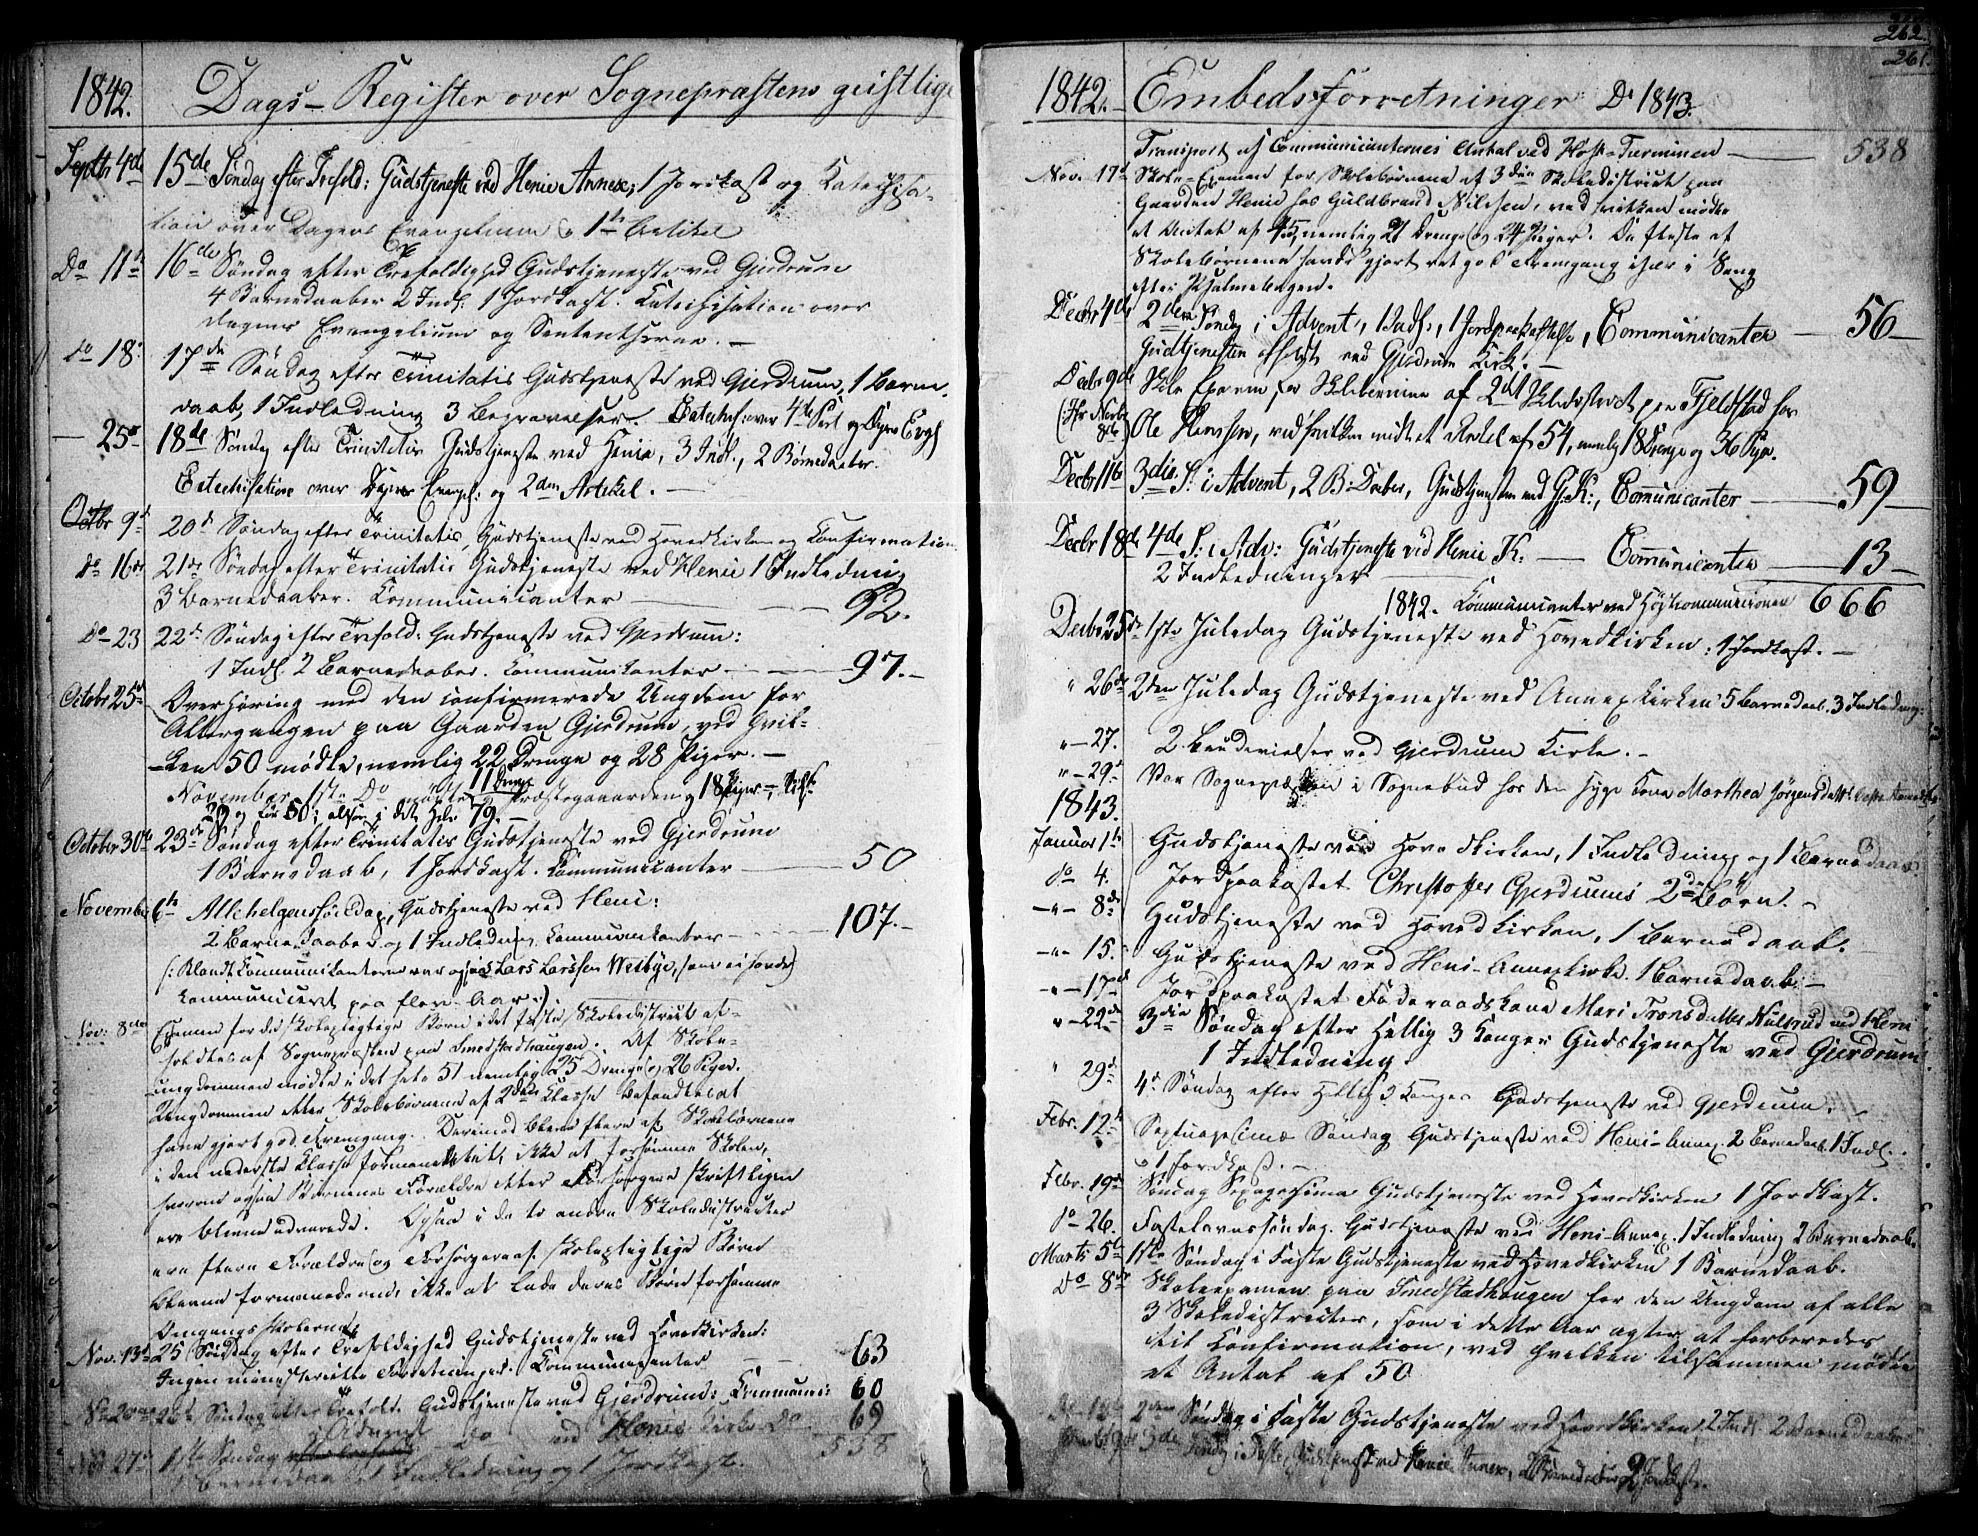 1842. Dags-Register over Sognepræstens geistlige
Septbr 4de 15de Søndag efter Trefold: Gudstjeneste ved Henie Annex; 1 Jordkast og Katechisa-
tion over Dagens Evangelium & 1ste Artikel
Do 11te 16de Søndag efter Trefoldighed Gudstjeneste ved Gjerdrum
4 Barnedaaber 2 Indl: 1 Jordkast. Katechisation over
Dagens Evangelium og Sententserne. –
do 18: 17de Søndag efter Trinitatis Gudstjeneste ved Gjerdrum, 1 Barne-
daab, 1 Indledning 3 Begravelser. Catechis: over 4de Part og Dagens Evgl
– 25de 18de Søndag efter Trinitatis Gudstjeneste ved Henie, 3 Indl., 2 Barnedaaber.
Catechisation over Dagens Evangel: og 2den Artikel. –
Octbr 9de 20de Søndag efter Trinitatis, Gudstjeneste ved Hovedkirken og Confirmation
do 16de 21de Søndag efter Trinitatis Gudstjeneste ved Henie 1 Indledning
3 Barnedaaber. Kommunicanter – 92.
do 23 22de Søndag efter Trefold: Gudstjeneste ved Gjerdrum:
1 Indl. 2 Barnedaaber. Communikanter – 97. –
Octobr 25de Overhøring med den confirmerede Ungdom før
Altergangen paa Gaarden Gjerdrum, ved hvil-
ken 50 mødte, nemlig 22 Drenge og 28 Piger. –
November 1ste Do mødte i Præstegaarden 11 Drenge og 18 Piger
29 og før 50; altsaa i det Hele 79. –
October 30te 23de Søndag efter Trinitatis Gudstjeneste ved Gjerdrum
1 Barnedaab, 1 Jordkast. Communicanter – 50
November 6te Allehelgensføndag, Gudstjeneste ved Heni:
2 Barnedaaber og 1 Indledning Communikanter – 107. –
(: Blandt Communikanterne var ogsaa Lars Larssen Welbye, som ei havde
kommuniceret paa flere Aar :)
Nov: 8de Examen for de skolepligtige Børn i det første Skoledistrict af-
holdtes af Sognepræsten paa Smedstadhaugen. Af Skole-
ungdommen mødte i det hele 51 nemlig 25 Drenge og 26 Piger.
Ungdommen eller Skolebørnene af 2den Klasse befandtes at
have gjort god Fremgang. Derimod bleve flere af Skolebørnene
i den nederste Klasse formanede til, ikke at forsømme Skolen,
hvorom ogsaa Børnenes Forældre eller Forsørgere skriftligen
ere blevne advarede. Ogsaa i de to andre Skoledistricter
ere flere Forældre og Forsørgere af skolepligtige Børn
blevne formanede om, ikke at lade deres Børn forsømme
Omgangsskolerne.
Nov. 13de 25 Søndag efter Trefoldighed Gudstjeneste ved Hovedkirken:
Ingen ministerielle Forretninger. Communicanter – 63
No 20de 26de Søndag efter Trefold. Gudstjeneste ved Gjerdrum: Kommuni: 60
Nov 27de 1ste Søndag i Advent – Do ved Henie Kirke Do 69
Barnedaab 1 Indledning og 1 Jordkast. 538
262
261.
1842. – Embedsforretninger Do 1843.
Transport af Communicanternes Antal ved Høst-Terminen – 538
Nov. 17de Skole-Examen for Skolebørnene af 3die Skoledistrict paa
Gaarden Henie hos Guldbrand Nilssen, ved hvilken mødte
et Antal af 45, nemlig 21 Drenge og 24 Piger. De fleste af
Skolebørnene havde gjort ret god Fremgang især i Sang
efter Psalmebogen.
Decbr 4de 2den Søndag i Advent, 1 Indl., 1 Jordpaakastelse, Communicanter – 56 –
Gudstjenesten afholdt ved Gjerdrum Kirk. –
Decbr 9de Skole Examen for Skolebørnene af 2det Skoledistrict paa Fjeldstad hos
Ole Hanssen, ved hvilken mødte et Antal af 54, nemlig 18 Drenge og 36 Piger.
Decbr 11te 3die S. i Advent, 2 B: Daaber, Gudstjeneste ved G. K:, Communicanter – 59 –
Decbr 18de 4de S: i Adv: Gudstjeneste ved Henie K. – Communicanter – 13 –
2 Indledninger
1842. Communicanter ved Høstcommunionen 666
Decbr 25de 1ste Juledag Gudstjeneste ved Hovedkirken: 1 Jordkast. –
" 26de 2den Juledag Gudstjeneste ved Annexkirken 5 Barnedaab. 3 Indledning:
" – 27. 2 Brudevielser ved Gjerdrum Kirke. –
" – 29de Var Sognepræsten i Sognebud hos den syge Kone Marthea Jörgensdatter
1843.
Januar 1ste Gudstjeneste ved Hovedkirken, 1 Indledning og 1 Barnedaab
do 4. Jordpaakastet Christoffer Gjerdrums 2de Børn. –
– " – 8de Gudstjeneste ved Hovedkirken, 1 Barnedaab.
– " – 15. Gudstjeneste ved Heni-Annexkirke. 1 Barnedaab. –
– " – 17de Jordpaakastet Føderaadskone Mari Tronsdatter Nulsrud ved Heni
" – 22de 3die Søndag efter Hellig 3 Konger Gudstjeneste ved Gjerdrum
1 Indledning
" 29de 4de Søndag efter Hellig 3 Konger Gudstjeneste ved Gjerdrum. –
Febr. 12te Septuagesima Søndag Gudstjeneste ved Heni-Annex. 2 Barnedaab. 1 Indl.
& 1 Jordkast. –
Febr. 19de Søndag Sexagesima Gudstjeneste ved Hovedkirken 1 Jordkast.
do – 26. Fastelavnssøndag. Gudstjeneste ved Heni-Annex. 1 Indledning 2 Barnedaab.
Marts 5te 1ste Søndag i Faste Gudstjeneste ved Hovedkirken 1 Barnedaab.
Do 8de Skoleexamen paa Smedstadhaugen for den Ungdom af alle
3 Skoledistricter, som i dette Aar agter at forberedes
til Confirmation, ved hvilken tilsammen mødte
et Antal af 50
Do 12te 2den Søndag i Faste Gudstjeneste ved Hovedkirken, 2 Indl. 2 Barnedaaber
3de Søndag i Faste, Gudstjeneste ved Henie Annex, Barnedaaber 2 Jordkast.